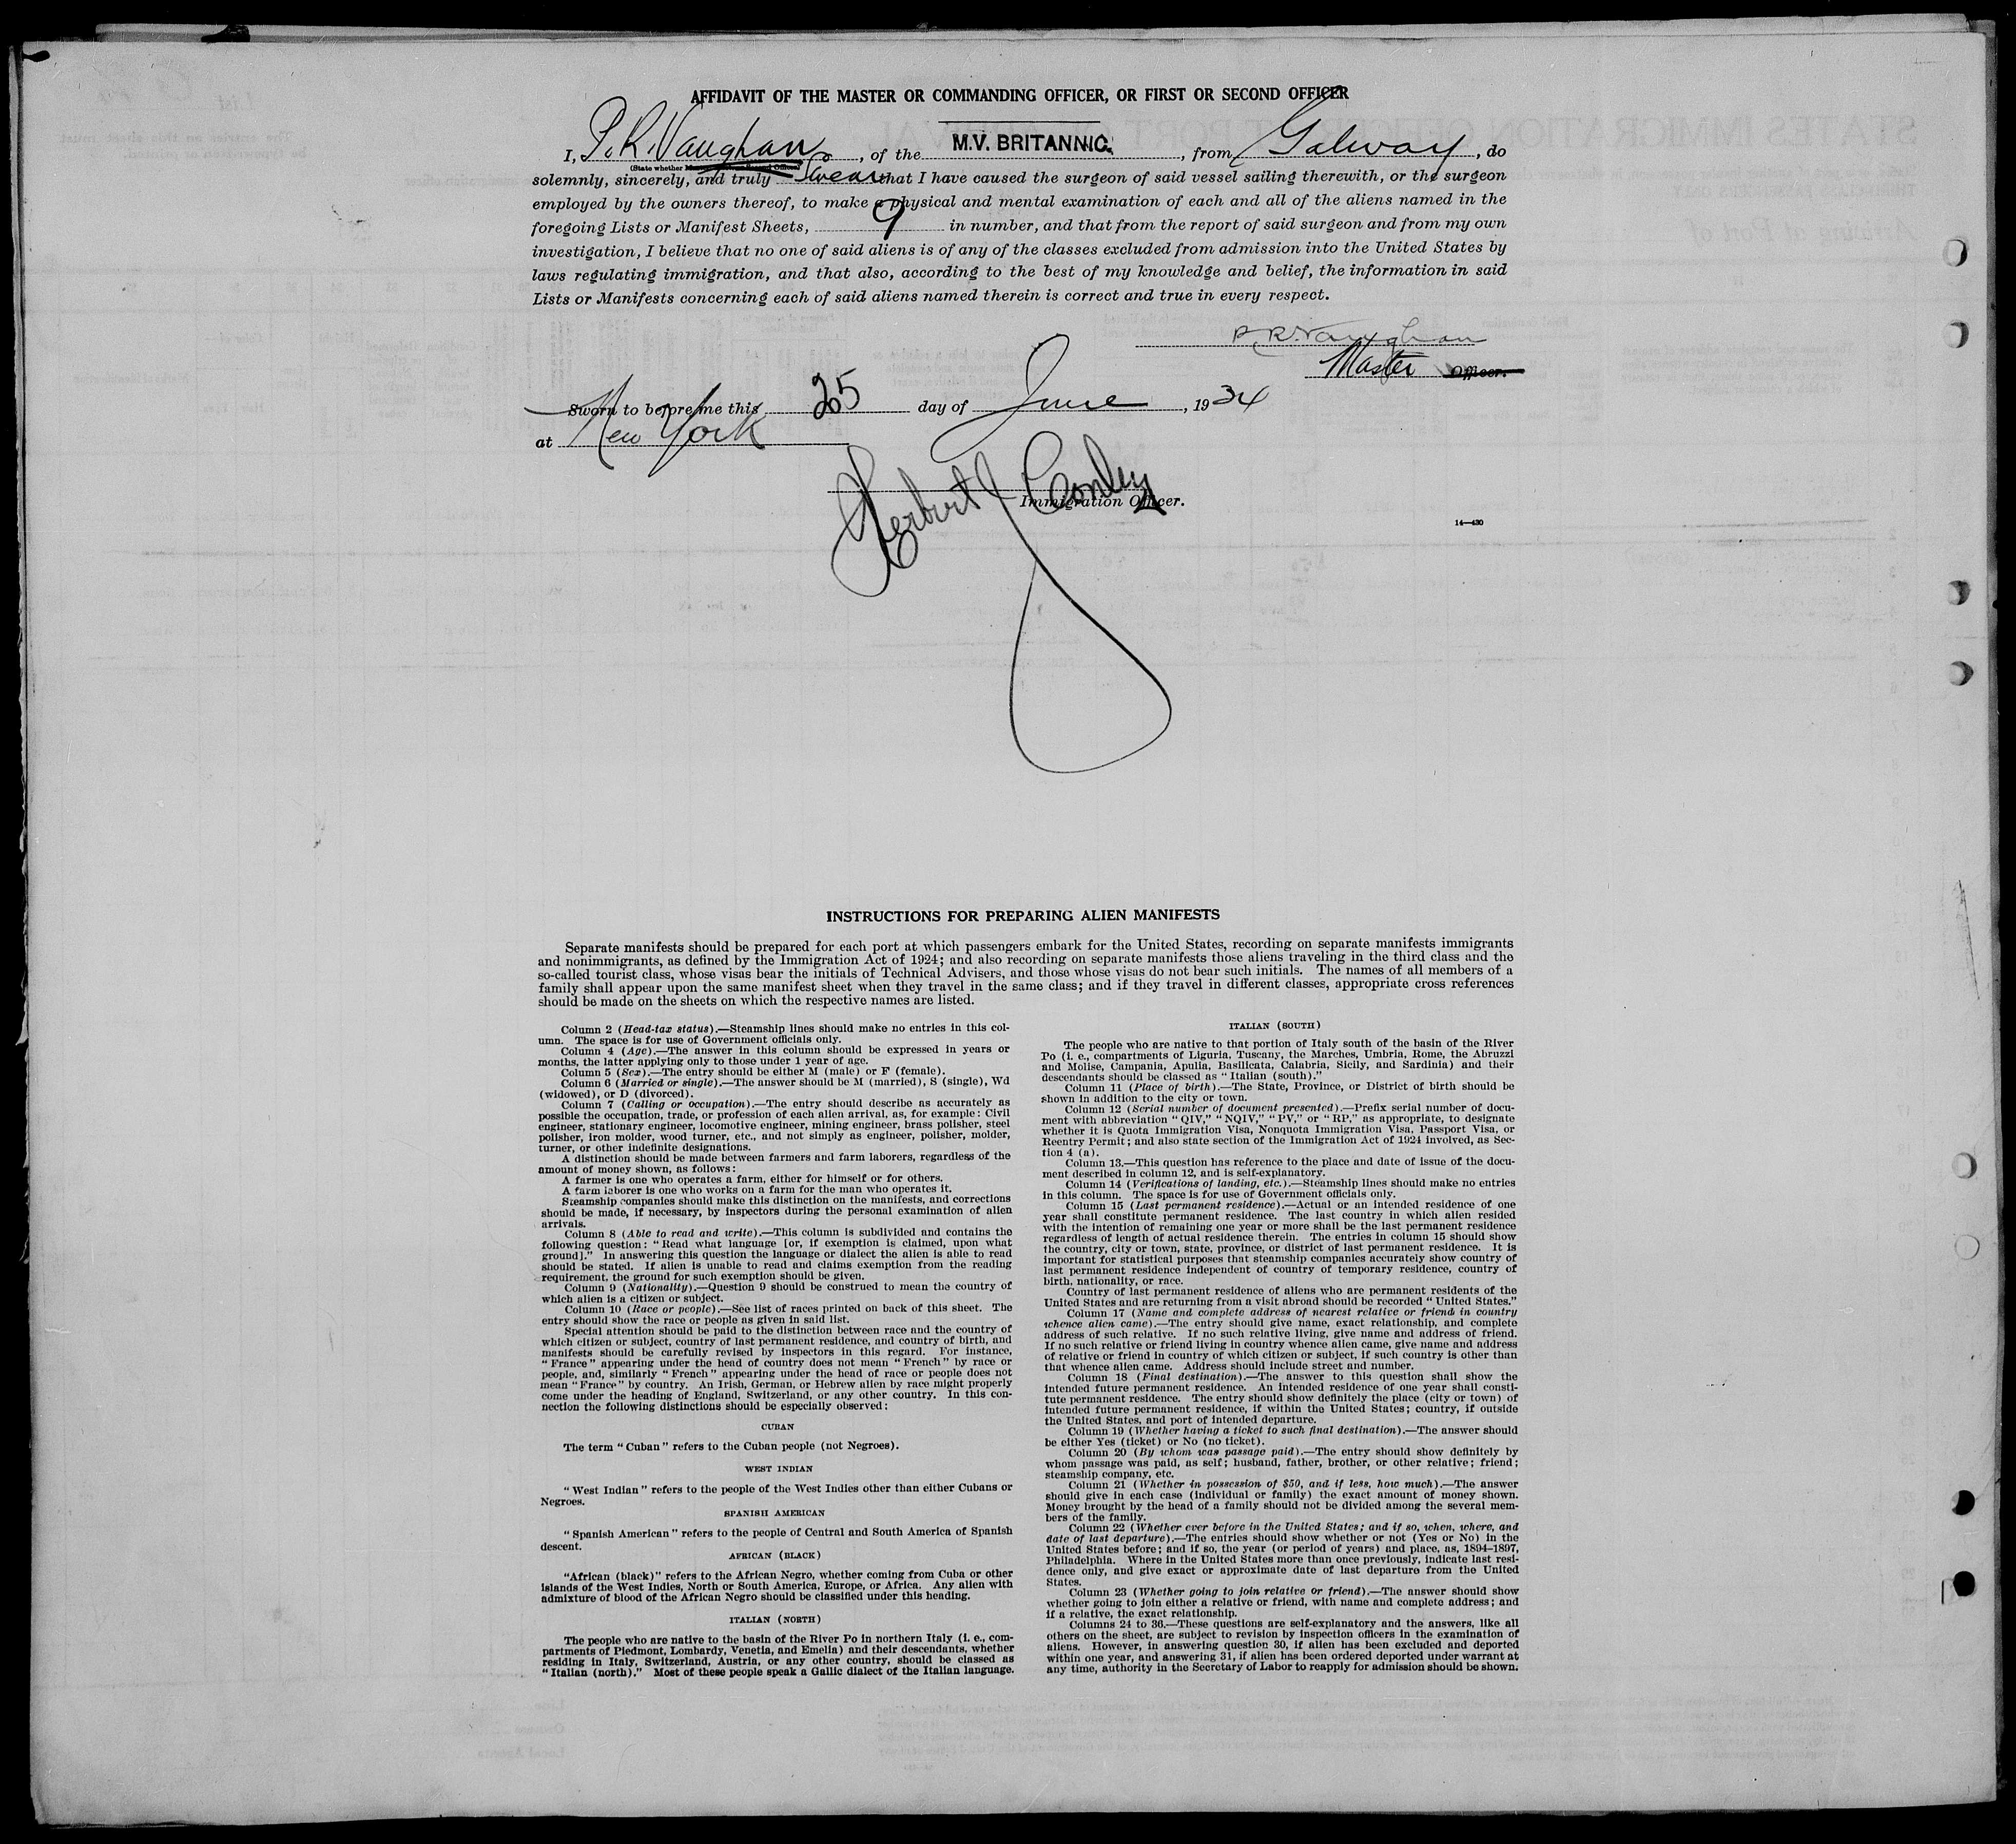 AFFIDAVIT OF THE MASTER OR COMMANDING OFFICER, OR FIRST OR SECOND OFFICER
I, P. R. Vaughan, of the M.V. BRITANNIC, from Galway, do
(State whether
solemnly, sincerely, and truly Swear that I have caused the surgeon of said vessel sailing therewith, or the surgeon
employed by the owners thereof, to make a physical and mental examination of each and all of the aliens named in the
foregoing Lists or Manifest Sheets, 9 in number, and that from the report of said surgeon and from my own
investigation, I believe that no one of said aliens is of any of the classes excluded from admission into the United States by
laws regulating immigration, and that also, according to the best of my knowledge and belief, the information in said
Lists or Manifests concerning each of said aliens named therein is correct and true in every respect.
P R Vaughan
Master Officer.
Sworn to before me this 25 day of June, 1934
at New York
Herbert J Conley
Immigration Officer.
14—430
INSTRUCTIONS FOR PREPARING ALIEN MANIFESTS
Separate manifests should be prepared for each port at which passengers embark for the United States, recording on separate manifests immigrants
and nonimmigrants, as defined by the Immigration Act of 1924; and also recording on separate manifests those aliens traveling in the third class and the
so-called tourist class, whose visas bear the initials of Technical Advisers, and those whose visas do not bear such initials. The names of all members of a
family shall appear upon the same manifest sheet when they travel in the same class; and if they travel in different classes, appropriate cross references
should be made on the sheets on which the respective names are listed.
Column 2 (Head-tax status).—Steamship lines should make no entries in this col-
umn. The space is for use of Government officials only.
Column 4 (Age).—The answer in this column should be expressed in years or
months, the latter applying only to those under 1 year of age.
Column 5 (Sex).—The entry should be either M (male) or F (female).
Column 6 (Married or single).—The answer should be M (married), S (single), Wd
(widowed), or D (divorced).
Column 7 (Calling or occupation).—The entry should describe as accurately as
possible the occupation, trade, or profession of each alien arrival, as, for example: Civil
engineer, stationary engineer, locomotive engineer, mining engineer, brass polisher, steel
polisher, iron molder, wood turner, etc., and not simply as engineer, polisher, molder,
turner, or other indefinite designations.
A distinction should be made between farmers and farm laborers, regardless of the
amount of money shown, as follows:
A farmer is one who operates a farm, either for himself or for others.
A farm laborer is one who works on a farm for the man who operates it.
Steamship companies should make this distinction on the manifests, and corrections
should be made, if necessary, by inspectors during the personal examination of alien
arrivals.
Column 8 (Able to read and write).—This column is subdivided and contains the
following question: "Read what language [or, if exemption is claimed, upon what
ground]." In answering this question the language or dialect the alien is able to read
should be stated. If alien is unable to read and claims exemption from the reading
requirement, the ground for such exemption should be given.
Column 9 (Nationality).—Question 9 should be construed to mean the country of
which alien is a citizen or subject.
Column 10 (Race or people).—See list of races printed on back of this sheet. The
entry should show the race or people as given in said list.
Special attention should be paid to the distinction between race and the country of
which citizen or subject, country of last permanent residence, and country of birth, and
manifests should be carefully revised by inspectors in this regard. For instance,
"France" appearing under the head of country does not mean "French" by race or
people, and, similarly "French" appearing under the head of race or people does not
mean "France" by country. An Irish, German, or Hebrew alien by race might properly
come under the heading of England, Switzerland, or any other country. In this con-
nection the following distinctions should be especially observed:
CUBAN
The term "Cuban" refers to the Cuban people (not Negroes).
WEST INDIAN
"West Indian" refers to the people of the West Indies other than either Cubans or
Negroes.
SPANISH AMERICAN
"Spanish American" refers to the people of Central and South America of Spanish
descent.
AFRICAN (BLACK)
"African (black)" refers to the African Negro, whether coming from Cuba or other
islands of the West Indies, North or South America, Europe, or Africa. Any alien with
admixture of blood of the African Negro should be classified under this heading.
ITALIAN (NORTH)
The people who are native to the basin of the River Po in northern Italy (i. e., com-
partments of Piedmont, Lombardy, Venetia, and Emelia) and their descendants, whether
residing in Italy, Switzerland, Austria, or any other country, should be classed as
"Italian (north)." Most of these people speak a Gallic dialect of the Italian language.
ITALIAN (SOUTH)
The people who are native to that portion of Italy south of the basin of the River
Po (i. e., compartments of Liguria, Tuscany, the Marches, Umbria, Rome, the Abruzzi
and Molise, Campania, Apulia, Basilicata, Calabria, Sicily, and Sardinia) and their
descendants should be classed as "Italian (south)."
Column 11 (Place of birth).—The State, Province, or District of birth should be
shown in addition to the city or town.
Column 12 (Serial number of document presented).—Prefix serial number of docu-
ment with abbreviation "QIV," "NQIV," "PV," or "RP," as appropriate, to designate
whether it is Quota Immigration Visa, Nonquota Immigration Visa, Passport Visa, or
Reentry Permit; and also state section of the Immigration Act of 1924 involved, as Sec-
tion 4 (a).
Column 13.—This question has reference to the place and date of issue of the docu-
ment described in column 12, and is self-explanatory.
Column 14 (Verifications of landing, etc.).—Steamship lines should make no entries
in this column. The space is for use of Government officials only.
Column 15 (Last permanent residence).—Actual or an intended residence of one
year shall constitute permanent residence. The last country in which alien resided
with the intention of remaining one year or more shall be the last permanent residence
regardless of length of actual residence therein. The entries in column 15 should show
the country, city or town, state, province, or district of last permanent residence. It is
important for statistical purposes that steamship companies accurately show country of
last permanent residence independent of country of temporary residence, country of
birth, nationality, or race.
Country of last permanent residence of aliens who are permanent residents of the
United States and are returning from a visit abroad should be recorded "United States."
Column 17 (Name and complete address of nearest relative or friend in country
whence alien came).—The entry should give name, exact relationship, and complete
address of such relative. If no such relative living, give name and address of friend.
If no such relative or friend living in country whence alien came, give name and address
of relative or friend in country of which citizen or subject, if such country is other than
that whence alien came. Address should include street and number.
Column 18 (Final destination).—The answer to this question shall show the
intended future permanent residence. An intended residence of one year shall consti-
tute permanent residence. The entry should show definitely the place (city or town) of
intended future permanent residence, if within the United States; country, if outside
the United States, and port of intended departure.
Column 19 (Whether having a ticket to such final destination).—The answer should
be either Yes (ticket) or No (no ticket).
Column 20 (By whom was passage paid).—The entry should show definitely by
whom passage was paid, as self; husband, father, brother, or other relative; friend;
steamship company, etc.
Column 21 (Whether in possession of $50, and if less, how much).—The answer
should give in each case (individual or family) the exact amount of money shown.
Money brought by the head of a family should not be divided among the several mem-
bers of the family.
Column 22 (Whether ever before in the United States; and if so, when, where, and
date of last departure).—The entries should show whether or not (Yes or No) in the
United States before; and if so, the year (or period of years) and place, as, 1894–1897,
Philadelphia. Where in the United States more than once previously, indicate last resi-
dence only, and give exact or approximate date of last departure from the United
States.
Column 23 (Whether going to join relative or friend).—The answer should show
whether going to join either a relative or friend, with name and complete address; and
if a relative, the exact relationship.
Columns 24 to 36.—These questions are self-explanatory and the answers, like all
others on the sheet, are subject to revision by inspection officers in the examination of
aliens. However, in answering question 30, if alien has been excluded and deported
within one year, and answering 31, if alien has been ordered deported under warrant at
any time, authority in the Secretary of Labor to reapply for admission should be shown.